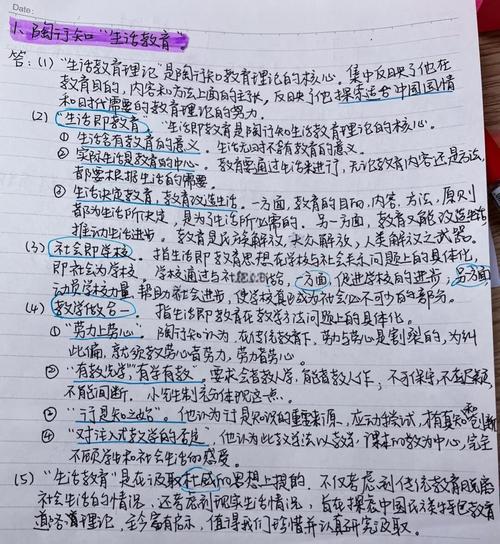 Date:
1、陶行知"生活教育"
答:(1)"生活教育理论"是陶行知教育理论的核心。集中反映了他在
教育目的,内容和方法上面的主张,反映了他探索适合中国国情
和时代需要的教育理论的努力。
(2)"生活即教育"。"生活即教育是陶行知生活教育理论的核心。
① 生活含有教育的意义。生活无时不含有教育的意义。
② 实际生活是教育的中心。教育要通过生活来进行,无论教育内容还是方法,
都要根据生活的需要。
③ 生活决定教育,教育改造生活。一方面,教育的目的,内容,方法,原则
都为生活所决定,是为了生活所必需的。另一方面,教育又能改造生活
推动生活进步。教育是民族解放,大众解放,人类解放之武器。
(3) 社会即学校。指生活即教育思想在学校与社会关系问题上的具体化,
即社会为学校。学校通过与社会结合,一方面,促进学校的进步;另方面
动员学校力量,帮助社会进步,使学校真正成为社会必不可少的部分。
(4) 教学做合一。指生活即教育在教学方法问题上的具体化。
①"劳力上劳心"。陶行知认为,在传统教育下,劳力与劳心是割裂的,为纠
此偏,就须教劳心者劳力,劳力者劳心。
②"有教先学","有学有教"。要求会者教人学,能者教人作;不可保守,不应迟疑
不能间断。小先生制充分体现这一点。
③"行是知之始"。他认为行是知识的重要来源,应动手尝试,才有真知 创
④"对注入式教学的否定"。他认为此教学法以教材,课本的教为中心,完全
不顾学生和社会生活的感受。
(5)"生活教育"是在汲取杜威的思想上提的。不仅考虑到传统教育脱离
社会生活的情况,还考虑到现实生活情况,旨在探索中国民族特色教育
道路 理论,至今富有启示,值得我们珍惜并认真研究汲取。